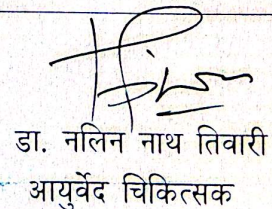 डा. नलिन नाथ तिवारी
आयुर्वेद चिकित्सक